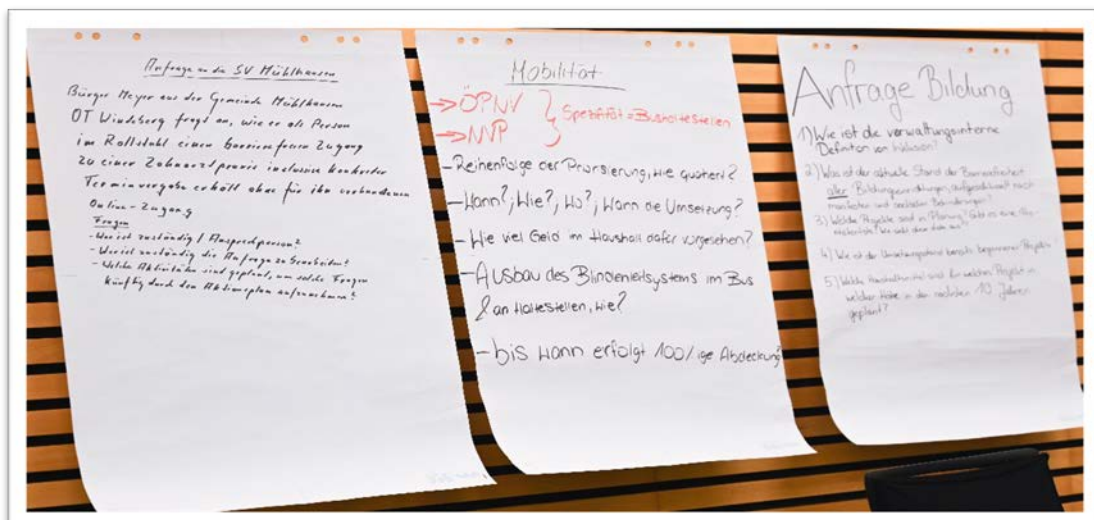 Anfrage an die SV Mühlhausen
Bürger Meyer aus der Gemeinde Mühlhausen
OT Windeberg fragt an, wie er als Person
im Rollstuhl einen barrierefreien Zugang
zu einer Zahnarztpraxis inclusive konkreter
Terminvergabe erhält ohne für ihn vorhandenen
Online-Zugang
Fragen
- Wer ist zuständig / Ansprechperson?
- Wer ist zuständig die Anfrage zu bearbeiten?
- Welche Aktivitäten sind geplant, um solche Fragen
künftig durch den Aktionsplan aufzunehmen?
Mobilität
→ ÖPNV
→ NVP
} Spezifität = Bushaltestellen
- Reihenfolge der Priorisierung, wie quotiert?
- Wann?, Wie?, Wo?, Wann die Umsetzung?
- Wie viel Geld im Haushalt dafür vorgesehen?
- Ausbau des Blindenleitsystems im Bus
& an Haltestellen, wie?
- bis wann erfolgt 100%ige Abdeckung?
Anfrage Bildung
1) Wie ist die verwaltungsinterne
Definition von Inklusion?
2) Was ist der aktuelle Stand der Barrierefreiheit
aller Bildungseinrichtungen, aufgeschlüsselt nach
3) Welche Projekte sind in Planung? Gibt es eine
4) Wie ist der Umsetzungsstand bereits begonnener Projekte?
5) Welche Haushaltsmittel sind für welches Projekt in
welcher Höhe in den nächsten 10 Jahren
geplant?